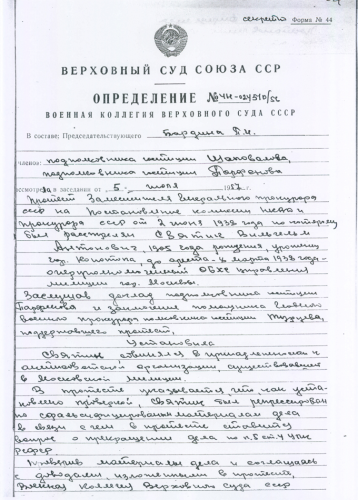 секретно Форма № 44
ВЕРХОВНЫЙ СУД СОЮЗА ССР
ОПРЕДЕЛЕНИЕ № 4Н-024510/56
ВОЕННАЯ КОЛЛЕГИЯ ВЕРХОВНОГО СУДА СССР
В составе: Председательствующего
членов: подполковника юстиции Шаповалова,
подполковника юстиции Парфенова
рассмотрела в заседании от 5 июля 19
Протест Заместителя Генерального прокурора
СССР на постановление комиссии НКВД и
прокурора СССР от 2 июня 1938 года по которому
был расстрелян Святие Вильгельм
Антонович, 1905 года рождения, уроженец
гор. Конотопа, до ареста 4 марта 1938 года
оперуполномоченный ОБХС управления
милиции гор. Москвы.
Заслушав доклад подполковника юстиции
Парфенова и заключение помощника Главного
военного прокурора подполковника юстиции
поддержавшего протест,
Установила
Святие обвинялся в принадлежности к
организации, существовавшей
в Московской милиции.
В протесте указывается что как уста-
новлено проверкой Святие был репрессирован
по сфальсифицированным материалам дела
в связи с чем в протесте ставится
вопрос о прекращении дела по п. 5 ст. 4 УПК
РСФСР.
Проверив материалы дела и соглашаясь
с доводами, изложенными в протесте,
Военная Коллегия Верховного Суда СССР